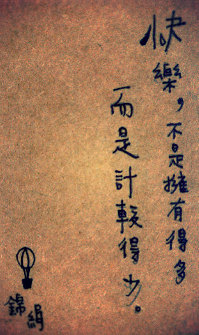 快樂，不是擁有得多
而是計較得少。
錦絹